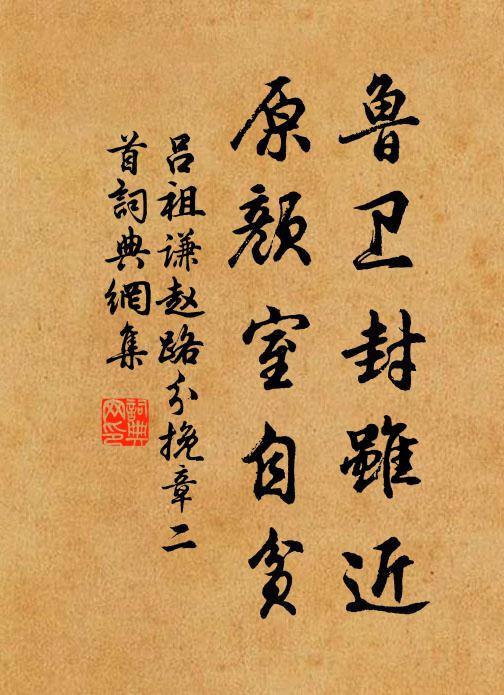 鲁卫封雖近
原颜室自貧
吕祖谦赵路分挽章二
首詞典網集
詞典網印